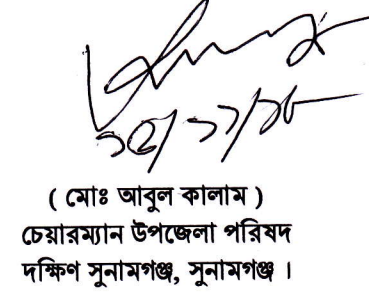 ১৫/১১/১৮
( মোঃ আবুল কালাম )
চেয়ারম্যান উপজেলা পরিষদ
দক্ষিণ সুনামগঞ্জ, সুনামগঞ্জ ।